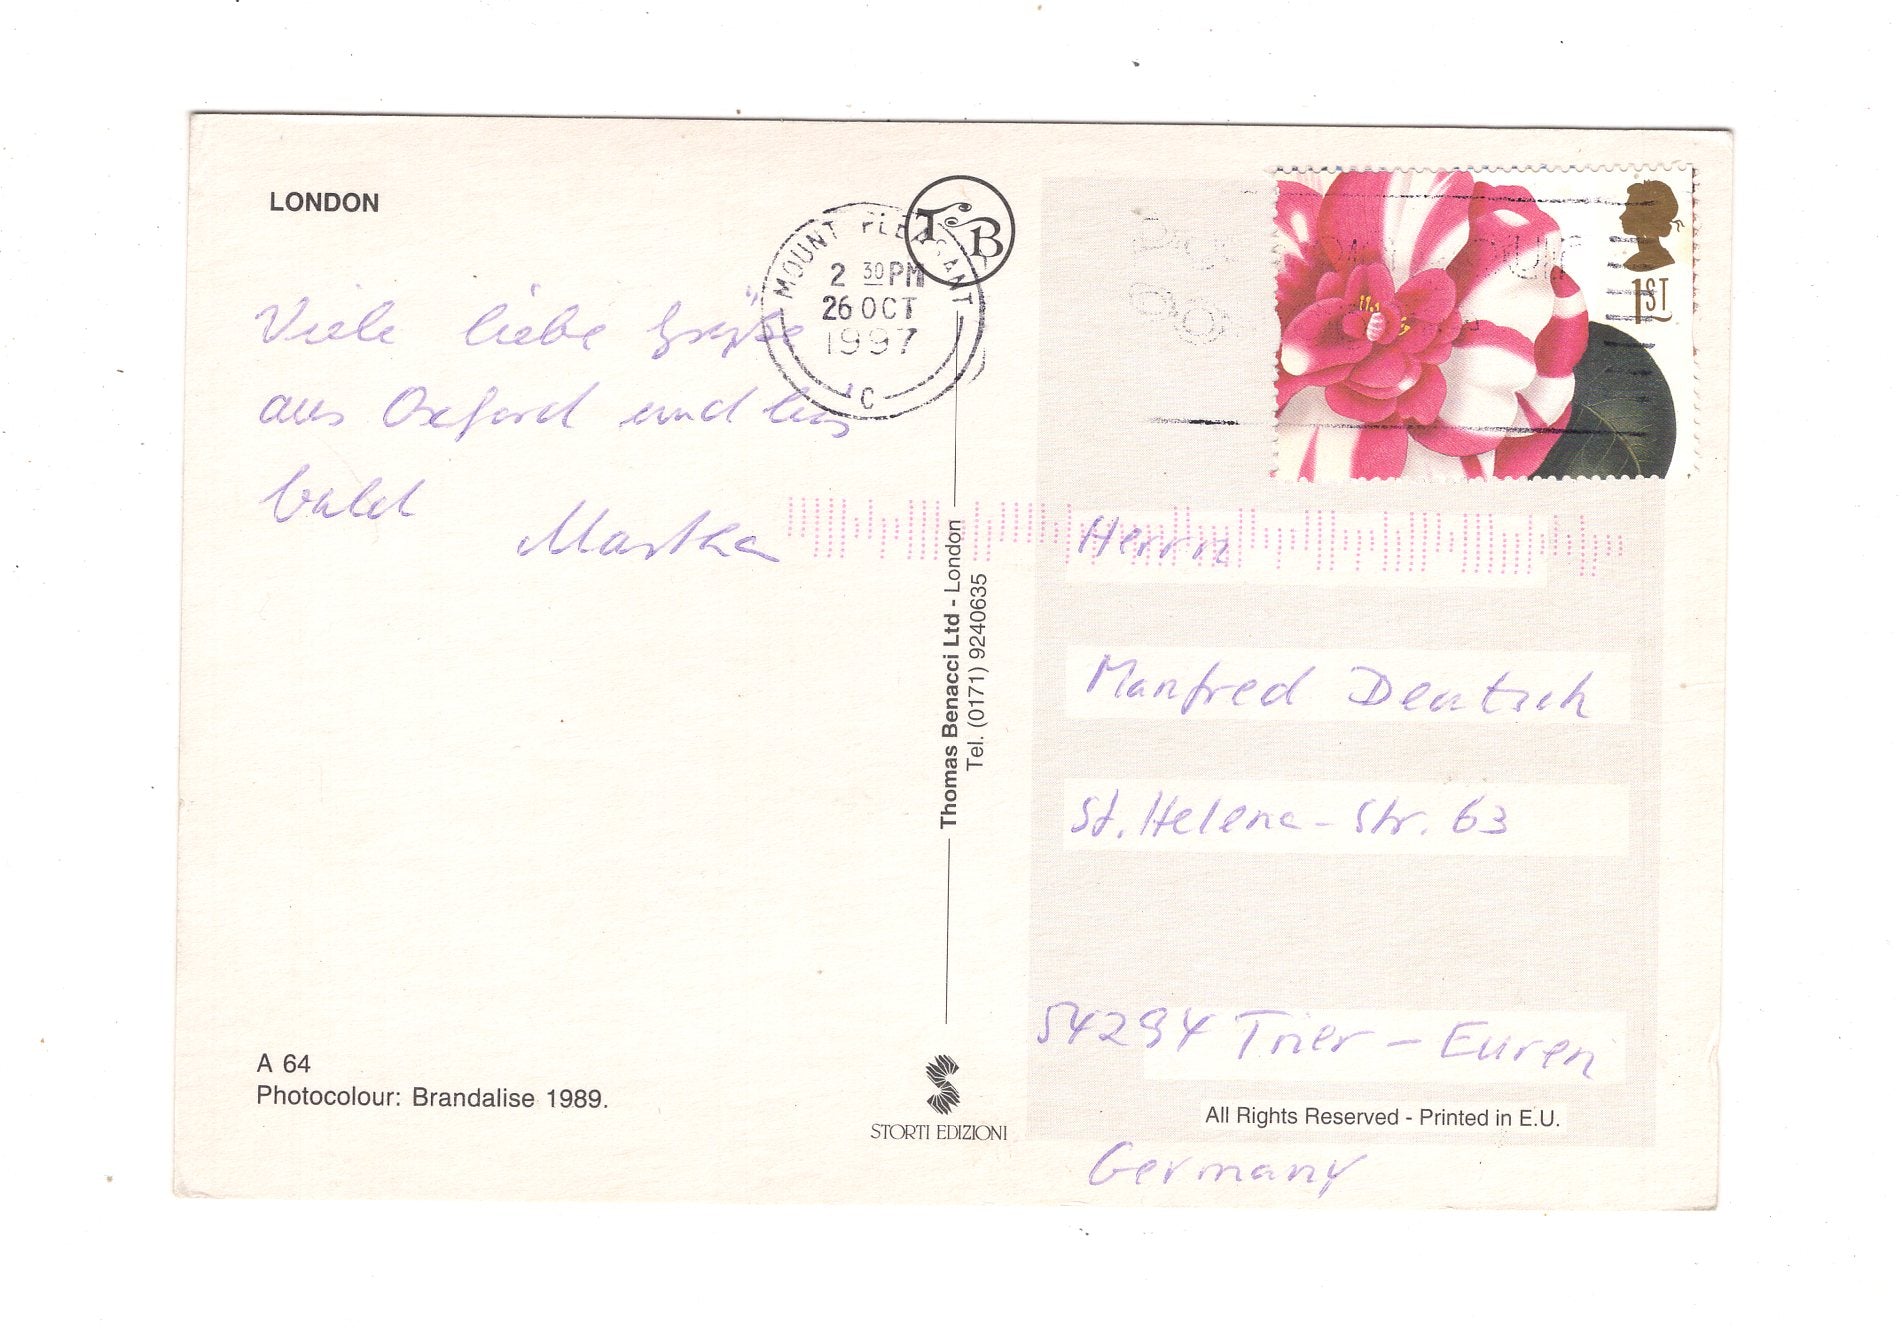 LONDON
TB
MOUNT PLEASANT
2 30 PM
26 OCT
1997
C
1ST
Viele liebe Grüße
aus Oxford und bis
bald
Martha
Thomas Benacci Ltd - London
Tel. (0171) 9240635
Herrn
Manfred Deutsch
St. Helena-Str. 63
54294 Trier - Euren
Germany
A 64
Photocolour: Brandalise 1989.
STORTI EDIZIONI
All Rights Reserved - Printed in E.U.